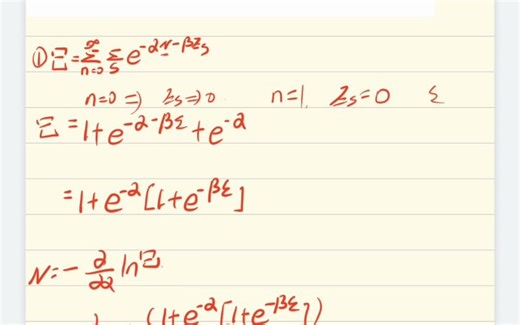 ① Ξ = Σ_{n=0}^{∞} Σ_s e^{-αN-βZs}
n=0 => Zs => 0. n=1, Zs=0 ε
Ξ = 1+e^{-α-βε}+e^{-α}
= 1+e^{-α}[1+e^{-βε}]
N = - ∂/∂α lnΞ
(1+e^{-α}[1+e^{-βε}])